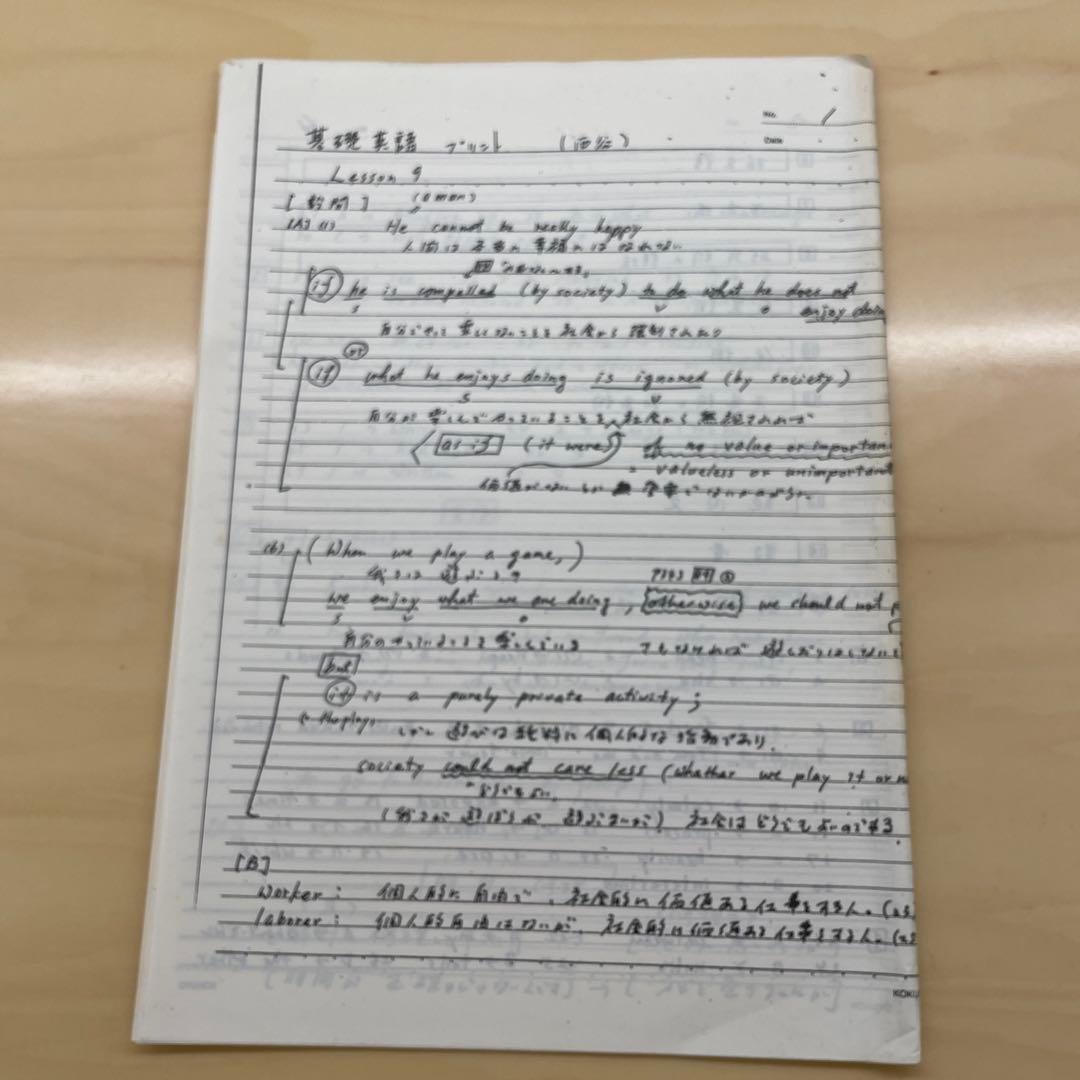 No. 1
Date
基礎英語 プリント (西谷)
Lesson 9
[設問] (a man)
[A] (1) He cannot be really happy
人間は本当に幸福にはなれない
if he is compelled (by society) to do what he does not enjoy doing
S V O
自分がやって楽しくないことを社会から強制されたり
or
if what he enjoys doing is ignored (by society)
S V
自分が楽しんでやっていることを社会から無視されれば
as if (it were) of no value or importan
= valueless or unimportant
価値がないとか
(b) (When we play a game,)
我々は遊ぶとき
we enjoy what we are doing, otherwise we should not p
S V O
自分のやっていることを楽しんでいる さもなければ
but
it is a purely private activity;
(= the play)
しかし遊びは純粋に個人的な活動であり、
society could not care less (whether we play it or n
どうでもよい
(我々が遊ぼうが遊ぶまいが) 社会はどうでもよいのである.
[B]
worker: 個人的に自由で、社会的に価値ある仕事をする人。(
laborer: 個人的自由はないが、社会的に価値ある仕事をする人。(
KOKU